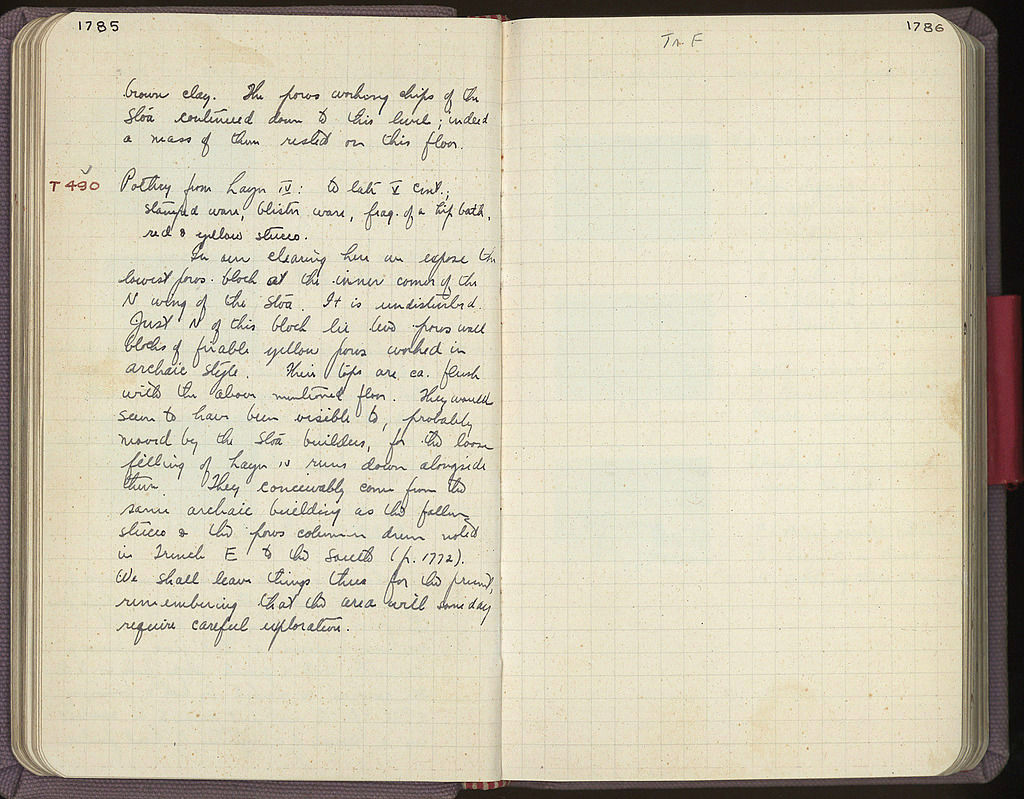 1785
brown clay. The poros working chips of the
Stoa continued down to this level; indeed
a mass of them rested on this floor.
T 490 Pottery from Layer IV: to late V cent.;
stamped ware, blister ware, frag. of a hip bath,
red & yellow stucco.
In our clearing here we expose the
lowest poros block at the inner corner of the
N wing of the Stoa. It is undisturbed.
Just N of this block lie two poros wall
blocks of friable yellow poros worked in
archaic style. Their tops are ca. flush
with the above mentioned floor. They would
seem to have been visible to, probably
moved by the Stoa builders, for the loose
filling of Layer IV runs down alongside
them. They conceivably come from the
same archaic building as the fallen
stucco & the poros column drum noted
in Trench E to the South (p. 1772).
We shall leave things thus for the present,
remembering that the area will some day
require careful exploration.
1786
Tr F